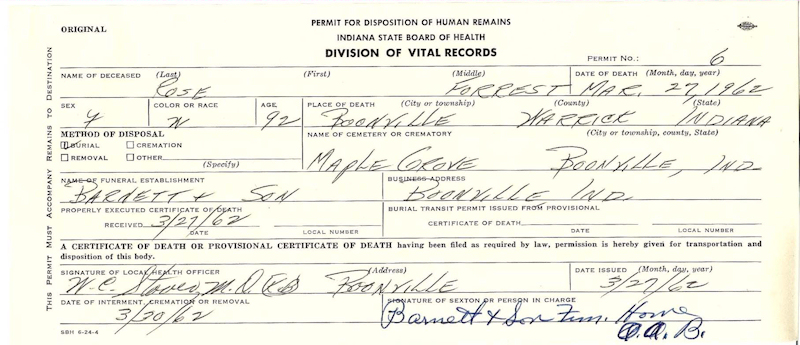 ORIGINAL
PERMIT FOR DISPOSITION OF HUMAN REMAINS
INDIANA STATE BOARD OF HEALTH
DIVISION OF VITAL RECORDS
PERMIT NO.: 6
THIS PERMIT MUST ACCOMPANY REMAINS TO DESTINATION
NAME OF DECEASED (Last) (First) (Middle) DATE OF DEATH (Month, day, year)
ROSE FORREST MAR. 27, 1962
SEX COLOR OR RACE AGE PLACE OF DEATH (City or township) (County) (State)
F W 92 BOONVILLE WARRICK INDIANA
METHOD OF DISPOSAL NAME OF CEMETERY OR CREMATORY (City or township, county, State)
BURIAL CREMATION
REMOVAL OTHER (Specify)
MAPLE GROVE BOONVILLE, IND.
NAME OF FUNERAL ESTABLISHMENT BUSINESS ADDRESS
BARNETT & SON BOONVILLE, IND.
PROPERLY EXECUTED CERTIFICATE OF DEATH BURIAL TRANSIT PERMIT ISSUED FROM PROVISIONAL
RECEIVED 3/27/62 CERTIFICATE OF DEATH
DATE LOCAL NUMBER DATE LOCAL NUMBER
A CERTIFICATE OF DEATH OR PROVISIONAL CERTIFICATE OF DEATH having been filed as required by law, permission is hereby given for transportation and
disposition of this body.
SIGNATURE OF LOCAL HEALTH OFFICER (Address) DATE ISSUED (Month, day, year)
W. C. M.D. BOONVILLE 3/27/62
DATE OF INTERMENT, CREMATION OR REMOVAL SIGNATURE OF SEXTON OR PERSON IN CHARGE
3/30/62 Barnett & Son Fun. Home
SBH 6-24-4